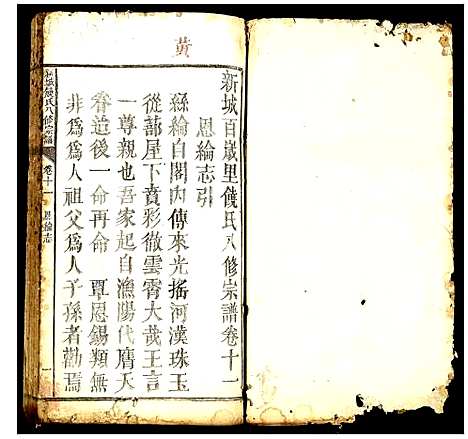 黄
新城百嵗里饒氏八修宗譜卷十一
恩綸志引
絲綸自閣內傳來光搖河漢珠玉
從蔀屋下賁彩徹雲霄大哉王言
一尊親也吾家起自漁陽代膺天
眷迨後一命再命覃恩錫類無
非爲爲人祖父爲人子孫者勸焉
饒氏八修宗譜
卷十一
恩綸志
一